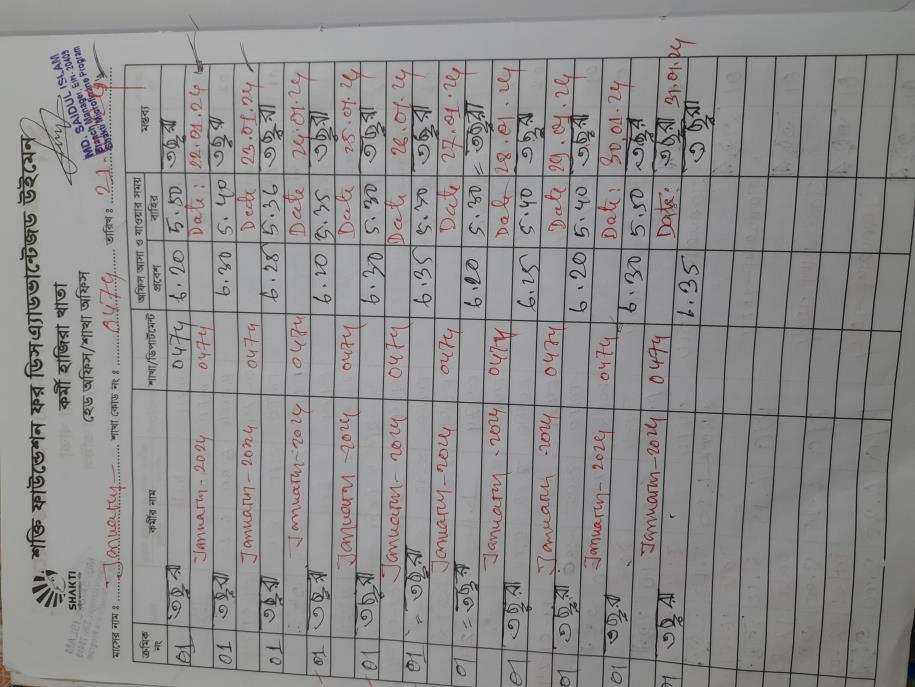 SHAKTI
শক্তি ফাউন্ডেশন ফর ডিসএ্যাডভান্টেজড উইমেন
কর্মী হাজিরা খাতা
হেড অফিস/শাখা অফিস
MD. SAIDUL ISLAM
মাসের নাম : January শাখা কোড নং : 0474 তারিখ :
ক্রমিক নং কর্মীর নাম শাখা/ডিপার্টমেন্ট অফিস আসা ও যাওয়ার সময় মন্তব্য
প্রবেশ বাহির
01 তছুরা 0474 6.20 5.50 তছুরা
January-2024 0474 Date: 22.01.24
01 তছুরা 6.30 5.40 তছুরা
January-2024 0474 Date 23.01.24
01 তছুরা 6.25 5.36 তছুরা
January-2024 0474 Date 24.01.24
01 তছুরা 6.20 5.35 তছুরা
January-2024 0474 Date 25.01.24
01 তছুরা 6.30 5.30 তছুরা
January-2024 0474 Date 26.01.24
01 = তছুরা 6.35 5.50 তছুরা
January-2024 0474 Date 27.01.24
01 = তছুরা 6.20 5.30 = তছুরা
January-2024 0474 Date 28.01.24
01 তছুরা 6.25 5.40 তছুরা
January-2024 0474 Date 29.01.24
01 তছুরা 6.20 5.40 তছুরা
January-2024 0474 Date: 30.01.24
01 তছুরা 6.30 5.50 তছুরা
January-2024 0474 Date: 31.01.24
01 তছুরা 6.35 তছুরা